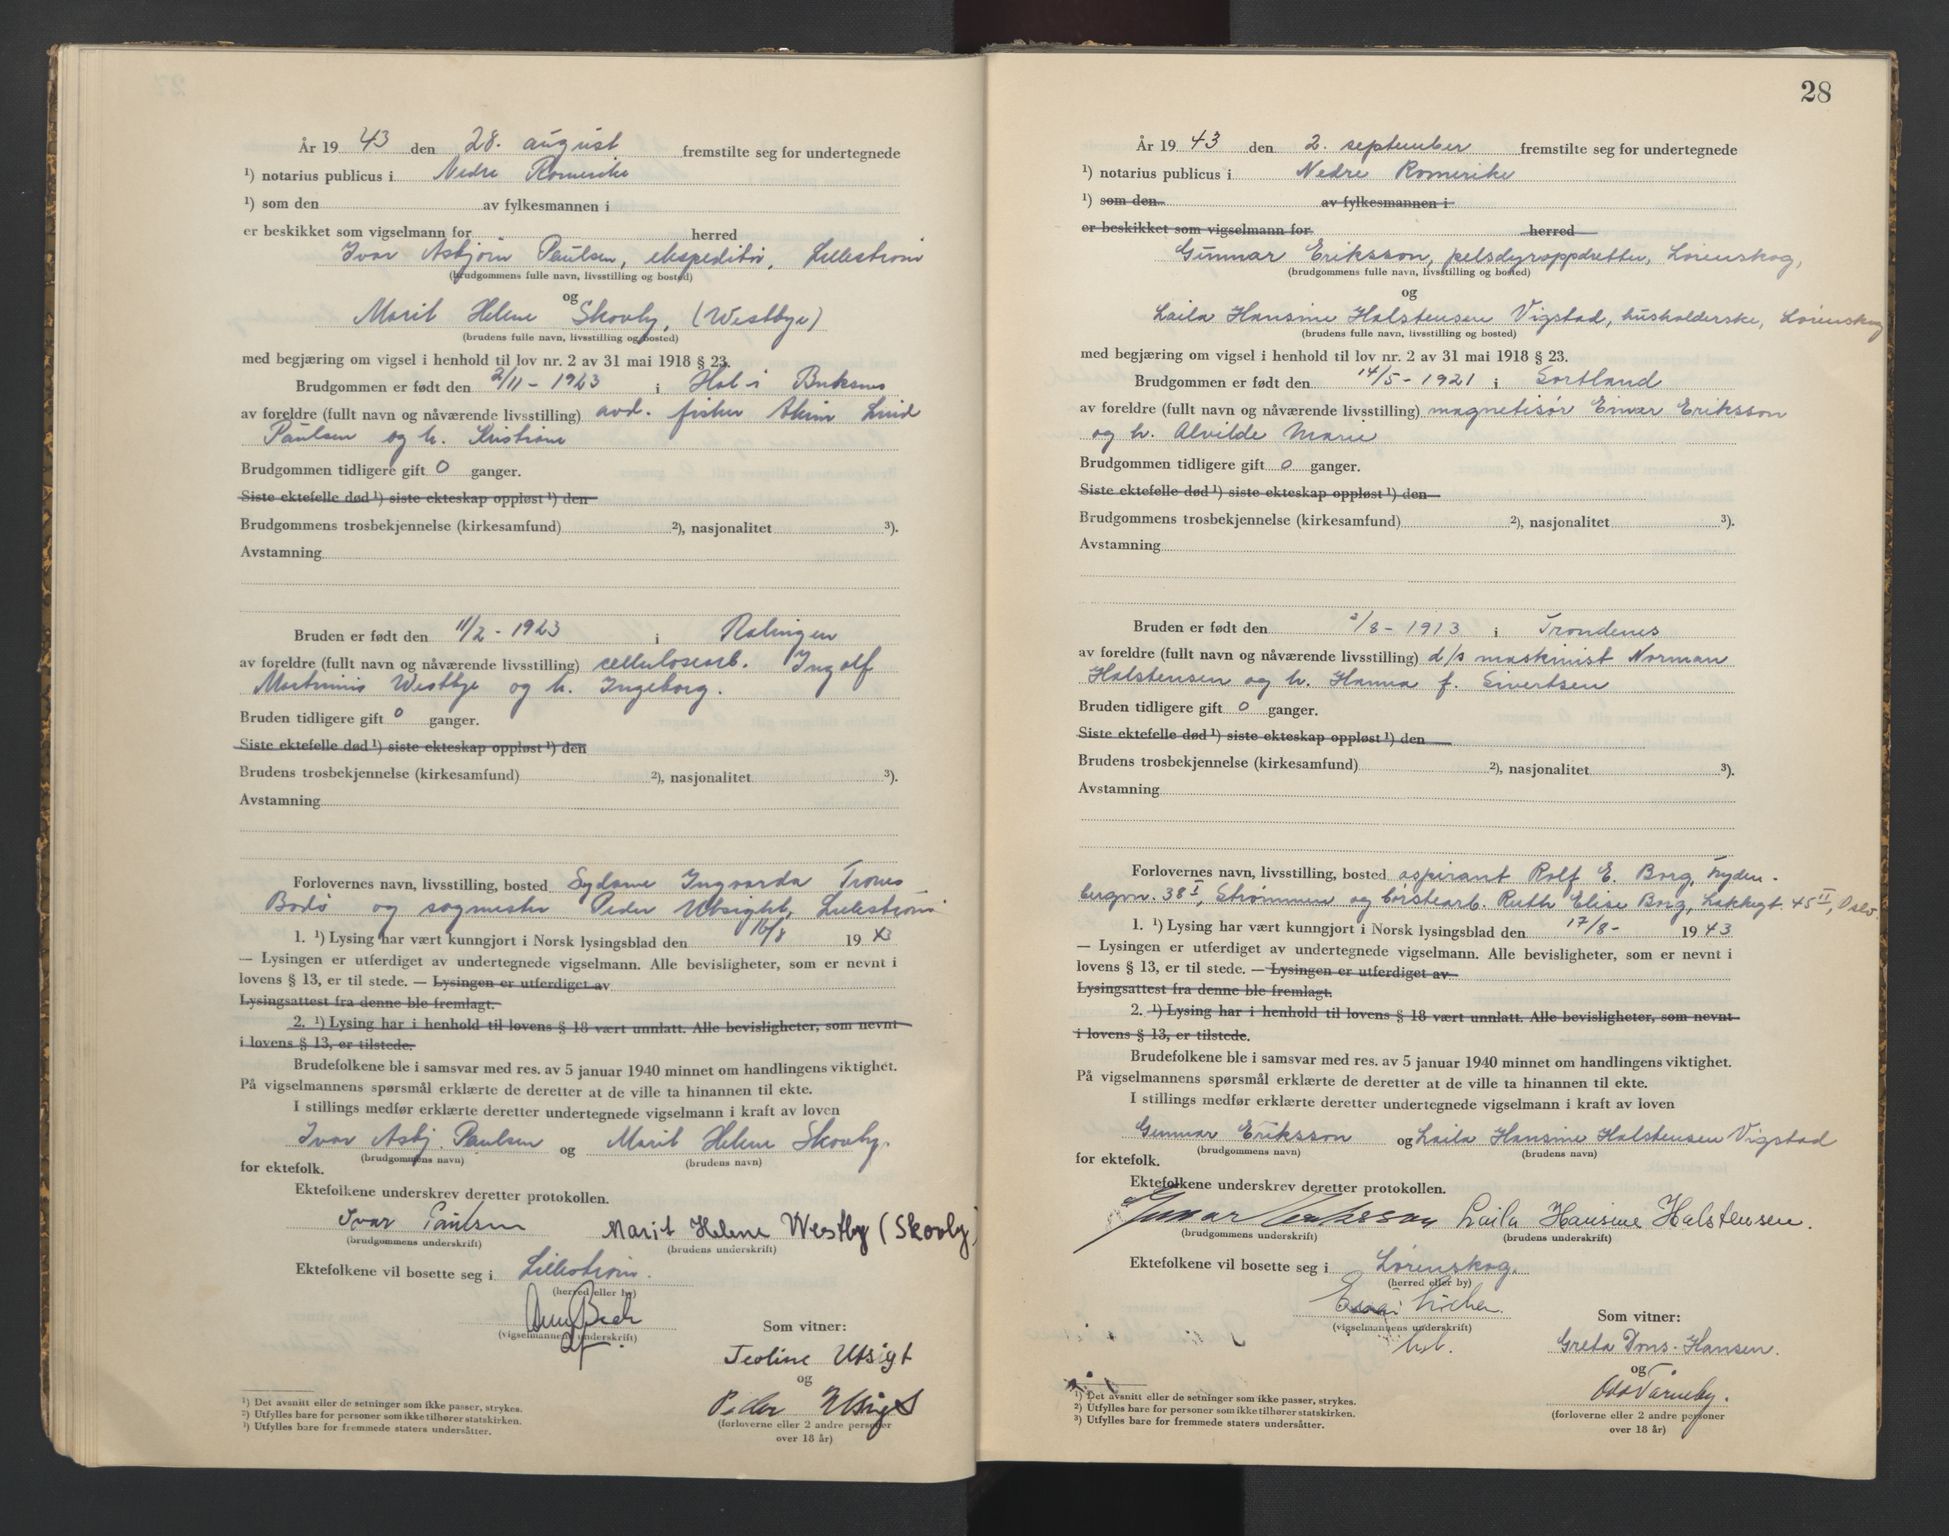 År 19 43 den 28. august fremstilte seg for undertegnede
¹) notarius publicus i Nedre Romerike
¹) som den av fylkesmannen i
er beskikket som vigselmann for herred
Ivar Asbjørn Paulsen, ekspeditør, Lillestrøm
(brudgommens fulle navn, livsstilling og bosted)
og
Marit Helene Skovby, (Westbye)
(brudens fulle navn, livsstilling og bosted)
med begjæring om vigsel i henhold til lov nr. 2 av 31 mai 1918 § 23.
Brudgommen er født den 2/11 - 1923 i Hol i Buksnes
av foreldre (fullt navn og nåværende livsstilling) avd. fisker Lind
Paulsen og h. Kristine
Brudgommen tidligere gift 0 ganger.
Siste ektefelle død ¹) siste ekteskap oppløst ¹) den
Brudgommens trosbekjennelse (kirkesamfund) ²), nasjonalitet ³).
Avstamning
Bruden er født den 11/2 - 1923 i Rælingen
av foreldre (fullt navn og nåværende livsstilling) cellulosearb. Ingolf
Martinius Westbye og h. Ingeborg.
Bruden tidligere gift 0 ganger.
Siste ektefelle død ¹) siste ekteskap oppløst ¹) den
Brudens trosbekjennelse (kirkesamfund) ²), nasjonalitet ³).
Avstamning
Forlovernes navn, livsstilling, bosted Sydame Ingvarda Trones
Bodø og sagmester Peder Utsigt, Lillestrøm
1. ¹) Lysing har vært kunngjort i Norsk lysingsblad den 16/8 19 43
— Lysingen er utferdiget av undertegnede vigselmann. Alle bevisligheter, som er nevnt i
lovens § 13, er til stede. — Lysingen er utferdiget av
Lysingsattest fra denne ble fremlagt.
2. ¹) Lysing har i henhold til lovens § 18 vært unnlatt. Alle bevisligheter, som nevnt
i lovens § 13, er tilstede.
Brudefolkene ble i samsvar med res. av 5 januar 1940 minnet om handlingens viktighet.
På vigselmannens spørsmål erklærte de deretter at de ville ta hinannen til ekte.
I stillings medfør erklærte deretter undertegnede vigselmann i kraft av loven
Ivar Asbj. Paulsen og Marit Helene Skovby.
(brudgommens navn) (brudens navn)
for ektefolk.
Ektefolkene underskrev deretter protokollen.
Ivar Paulsen Marit Helene Westby (Skovby)
(brudgommens underskrift) (brudens underskrift)
Ektefolkene vil bosette seg i Lillestrøm.
(herred eller by)
(vigselmannens underskrift)
Som vitner:
Teoline Utsigt
og
Peder Utsigt
(forloverne eller 2 andre personer
over 18 år)
¹) Det avsnitt eller de setninger som ikke passer, strykes.
²) Utfylles bare for personer som ikke tilhører statskirken.
³) Utfylles bare for fremmede staters undersåtter.
28
År 19 43 den 2. september fremstilte seg for undertegnede
¹) notarius publicus i Nedre Romerike
¹) som den av fylkesmannen i
er beskikket som vigselmann for herred
Gunnar Eriksson, pelsdyroppdretter, Lørenskog,
(brudgommens fulle navn, livsstilling og bosted)
og
Laila Hansine Halstensen Vigstad, husholderske, Lørenskog
(brudens fulle navn, livsstilling og bosted)
med begjæring om vigsel i henhold til lov nr. 2 av 31 mai 1918 § 23.
Brudgommen er født den 14/5 - 1921 i Sortland
av foreldre (fullt navn og nåværende livsstilling) magnetisør Einar Eriksson
og h. Alvilde Marie
Brudgommen tidligere gift 0 ganger.
Siste ektefelle død ¹) siste ekteskap oppløst ¹) den
Brudgommens trosbekjennelse (kirkesamfund) ²), nasjonalitet ³).
Avstamning
Bruden er født den 2/8 - 1913 i Trondenes
av foreldre (fullt navn og nåværende livsstilling) d/s maskinist Norman
Halstensen og h. Hanna f. Sivertsen
Bruden tidligere gift 0 ganger.
Siste ektefelle død ¹) siste ekteskap oppløst ¹) den
Brudens trosbekjennelse (kirkesamfund) ²), nasjonalitet ³).
Avstamning
Forlovernes navn, livsstilling, bosted aspirant Rolf E. Borg, Fryden-
bergvn. 38 I, Strømmen og børstearb. Ruth Elise Borg, Lakkegt. 45 II, Oslo.
1. ¹) Lysing har vært kunngjort i Norsk lysingsblad den 17/8 - 19 43
— Lysingen er utferdiget av undertegnede vigselmann. Alle bevisligheter, som er nevnt i
lovens § 13, er til stede. — Lysingen er utferdiget av
Lysingsattest fra denne ble fremlagt.
2. ¹) Lysing har i henhold til lovens § 18 vært unnlatt. Alle bevisligheter, som nevnt
i lovens § 13, er tilstede.
Brudefolkene ble i samsvar med res. av 5 januar 1940 minnet om handlingens viktighet.
På vigselmannens spørsmål erklærte de deretter at de ville ta hinannen til ekte.
I stillings medfør erklærte deretter undertegnede vigselmann i kraft av loven
Gunnar Eriksson og Laila Hansine Halstensen Vigstad
(brudgommens navn) (brudens navn)
for ektefolk.
Ektefolkene underskrev deretter protokollen.
Gunnar Eriksson Laila Hansine Halstensen.
(brudgommens underskrift) (brudens underskrift)
Ektefolkene vil bosette seg i Lørenskog.
(herred eller by)
(vigselmannens underskrift)
Som vitner:
Greta Dons-Hansen.
og
(forloverne eller 2 andre personer
over 18 år)
¹) Det avsnitt eller de setninger som ikke passer, strykes.
²) Utfylles bare for personer som ikke tilhører statskirken.
³) Utfylles bare for fremmede staters undersåtter.